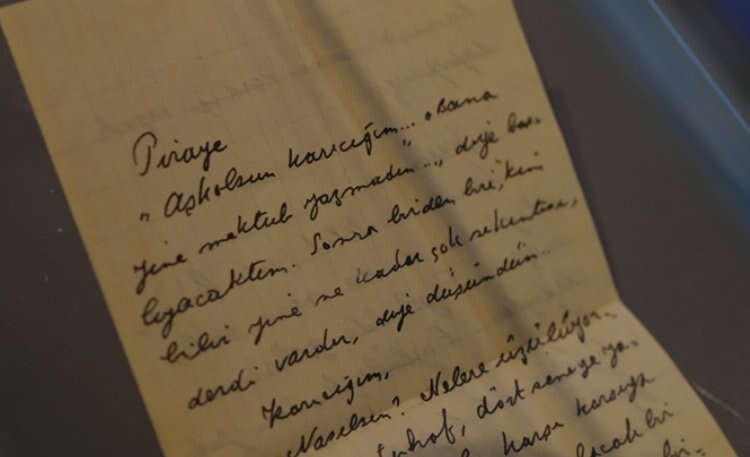 Piraye
„ Aşkolsun karıcığım... „ Bana
yine mektub yazmadın „..., diye baş-
lıyacaktım. Sonra birden bire, kim
bilir yine ne kadar çok sıkıntısı,
derdi vardır, diye düşündüm..
Karıcığım,
Nasılsın? Nelere üzülüyor-
dört seneye ya-
karşı karşıya